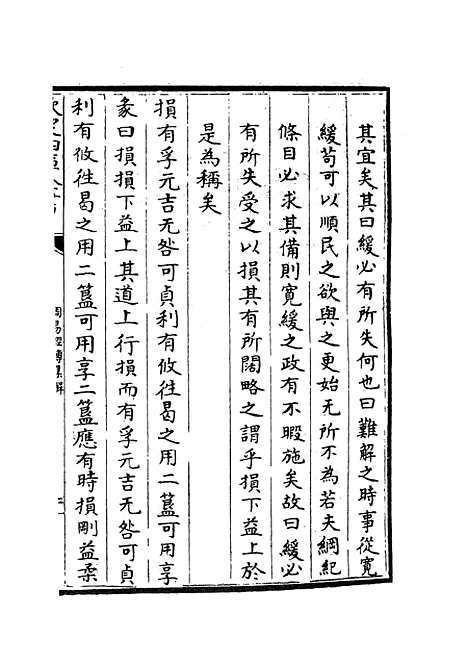 其宜矣其曰緩必有所失何也曰難解之時事從寛
緩茍可以順民之欲與之更始无所不為若夫綱紀
條目必求其備則寛緩之政有不暇施矣故曰緩必
有所失受之以損其有所闊略之謂乎損下益上於
是為稱矣
損有孚元吉无咎可貞利有攸往曷之用二簋可用享
彖曰損損下益上其道上行損而有孚元吉无咎可貞
利有攸往曷之用二簋可用享二簋應有時損剛益柔
周易經傳集解